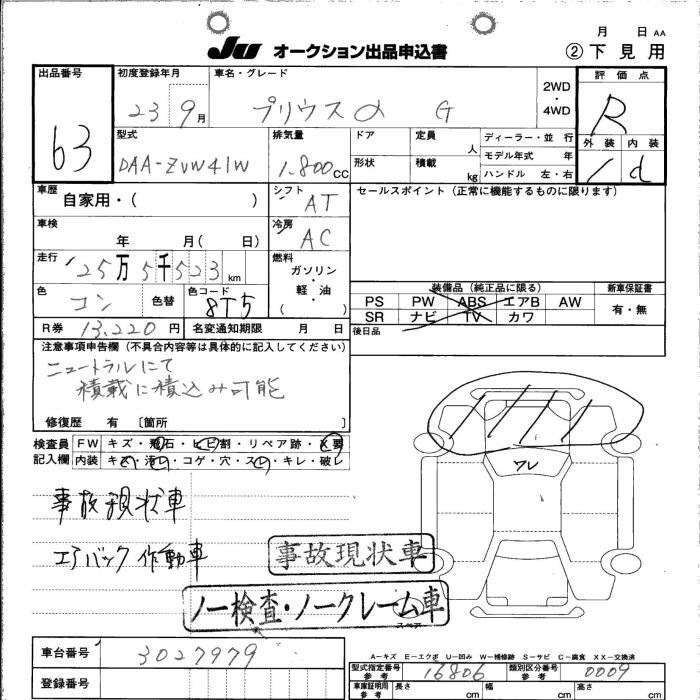 月 日 AA
JU オークション出品申込書
② 下見用
出品番号 63
初度登録年月 23 9月
車名・グレード プリウスα G
2WD・4WD
評価点 R
外装 1 内装 d
型式 DAA-ZVW41W
排気量 1,800cc
ドア 形状
定員 人
積載 kg
ディーラー・並行
モデル年式 年
ハンドル 左・右
車歴 自家用・( )
シフト AT
セールスポイント (正常に機能するものに限ります)
車検 年 月( 日)
冷房 AC
走行 '25万5千523km
燃料 ガソリン・軽油 ( )
色 コン 色替
色コード 8T5
装備品 (純正品に限る)
新車保証書
PS PW ABS エアB AW
SR ナビ TV カワ
有・無
R券 13,220円
名変通知期限 月 日
後日品
注意事項申告欄 (不具合内容等は具体的に記入してください)
ニュートラルにて
積載に積込み可能
修復歴 有 〔箇所 〕
検査員記入欄
FW キズ・飛石・ヒビ割・リペア跡・X要
内装 キズ・汚レ・コゲ・穴・スレ・キレ・破レ
ワレ
事故現状車
エアバック作動車
事故現状車
ノー検査・ノークレーム車
スペア
A-キズ E-エクボ U-凹み W-補修跡 S-サビ C-腐食 XX-交換済
車台番号 3027979
型式指定番号 参考 16806
類別区分番号 参考 0009
登録番号
車庫証明用 参考 長さ cm 幅 cm 高さ cm